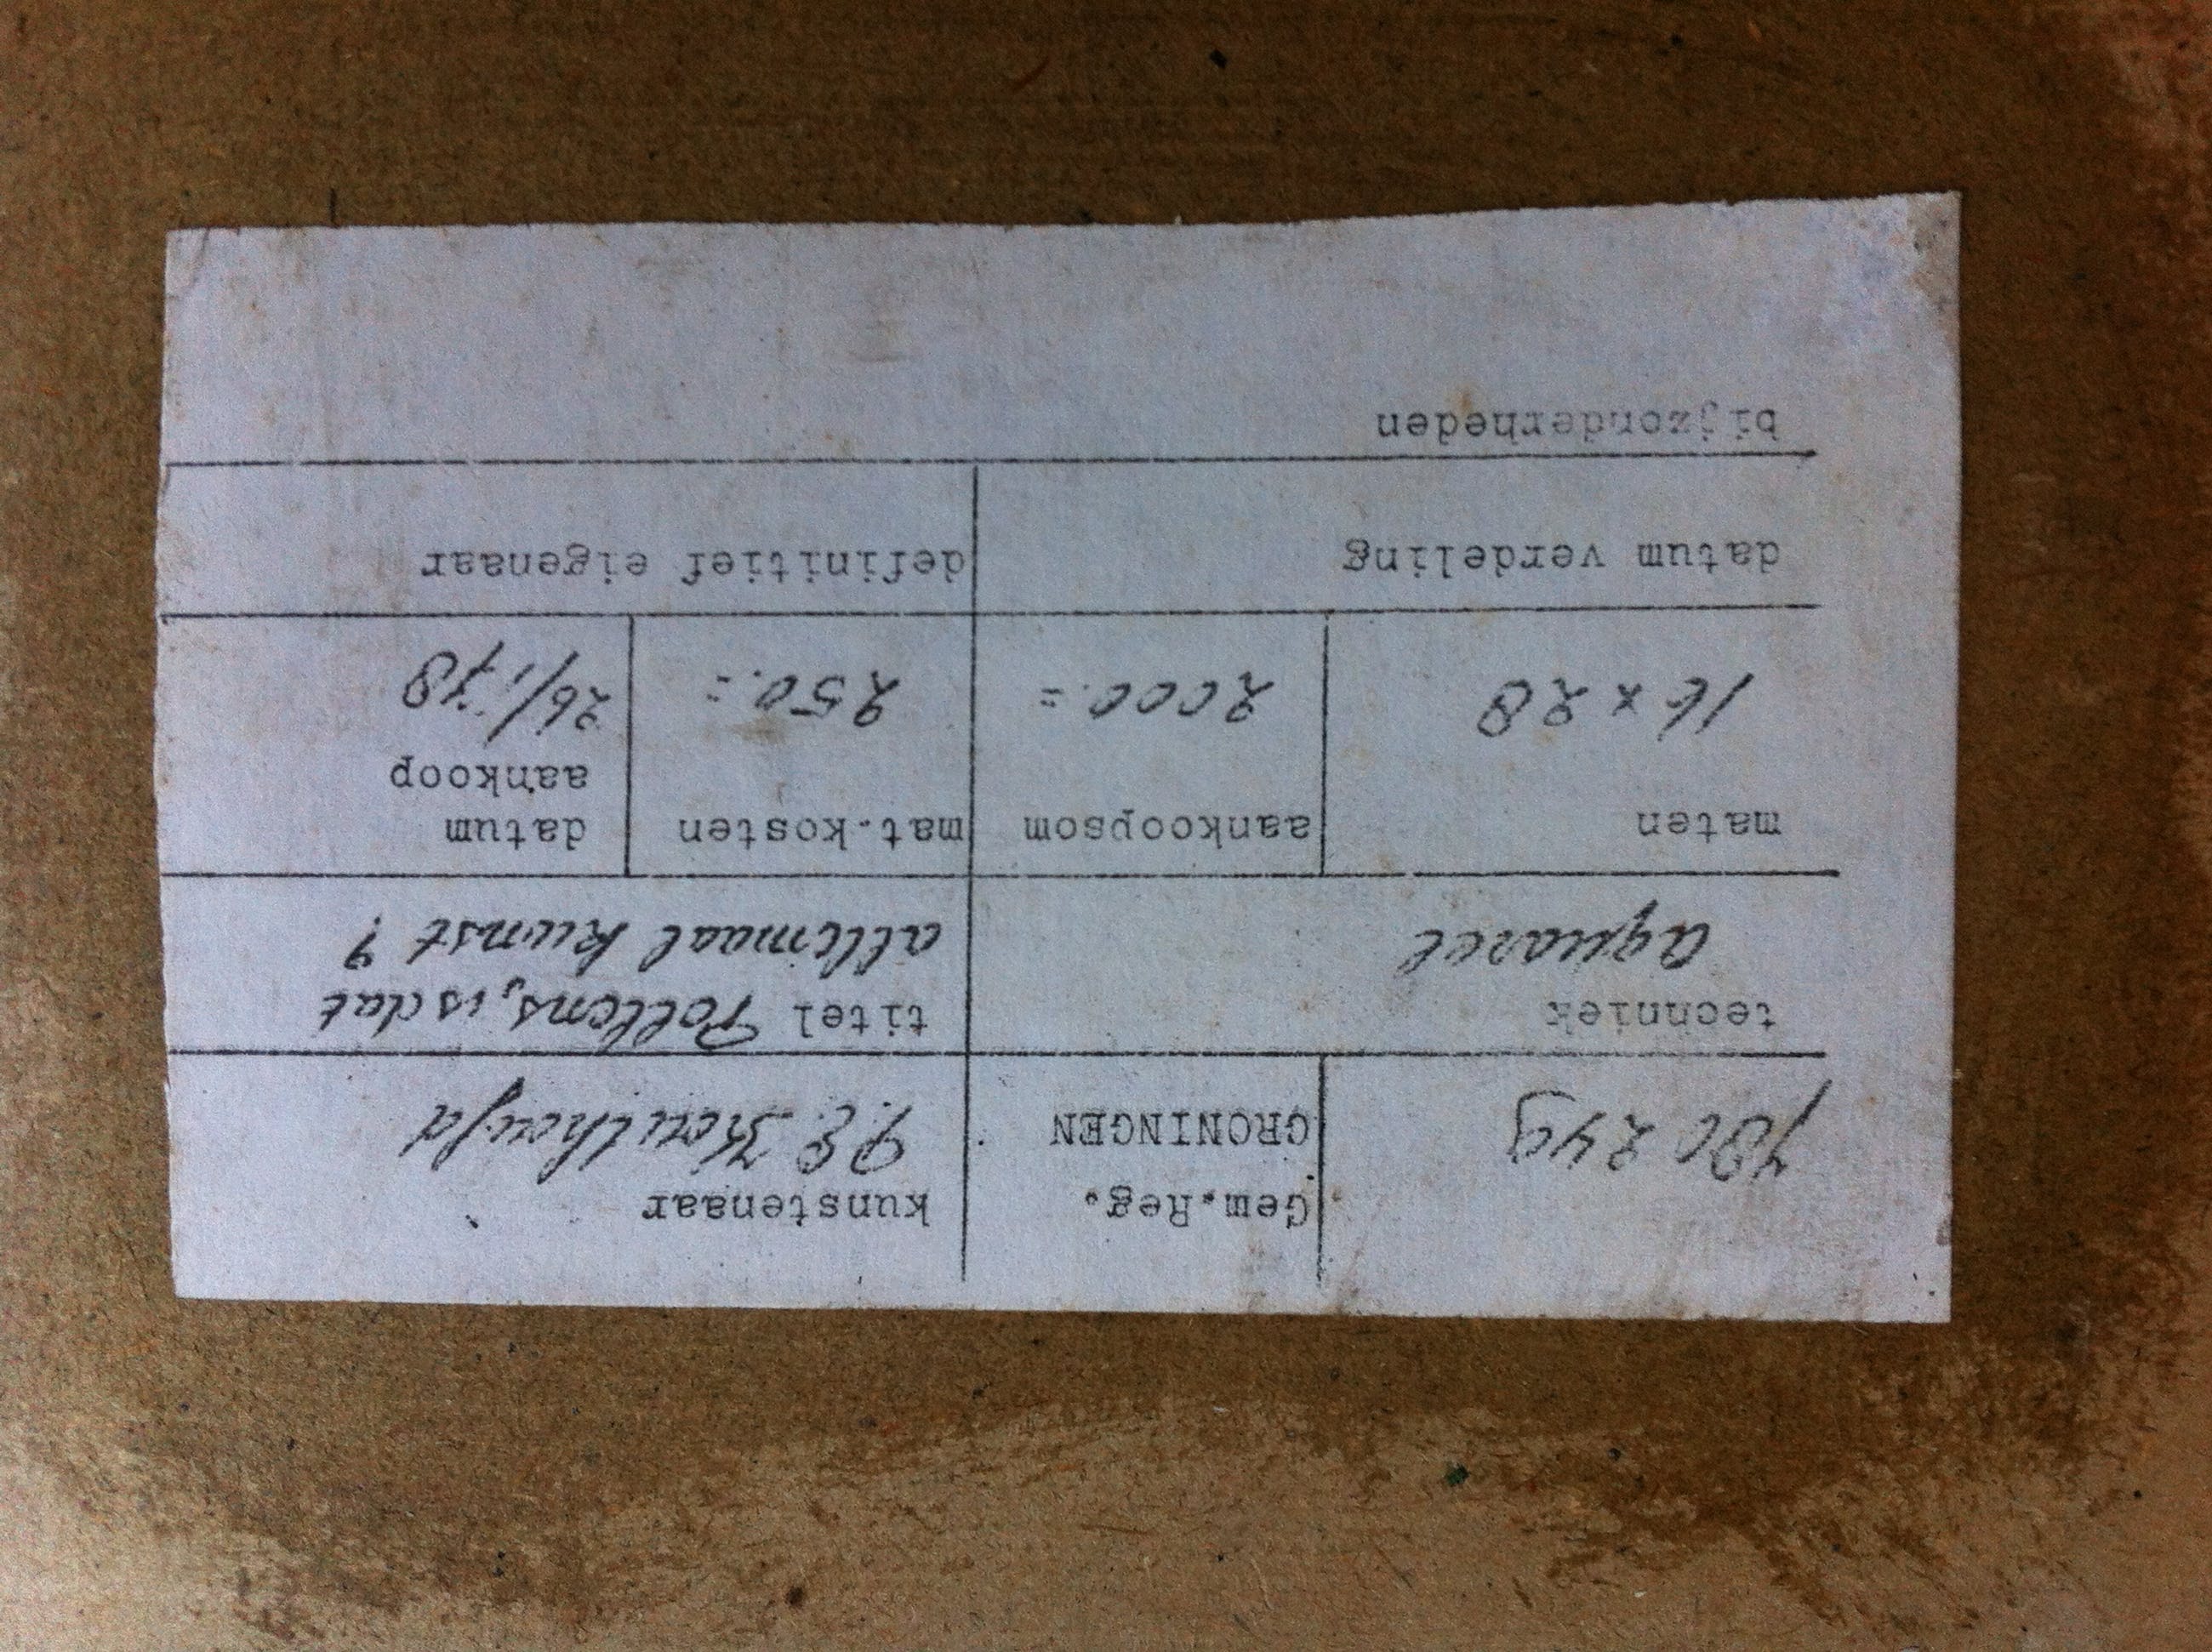 780249
Gem.Reg.
GRONINGEN
kunstenaar
techniek
aquarel
titel Poltens, is dat
allemaal kunst?
maten
16 x 28
aankoopsom
2000.=
mat.kosten
250.=
datum
aankoop
26/1, 78
datum verdeling
definitief eigenaar
bijzonderheden